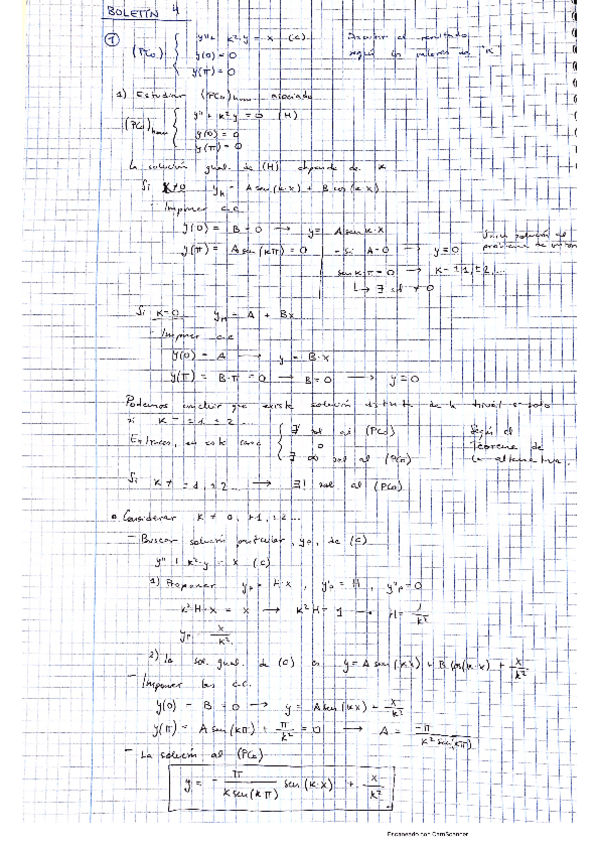 BOLETÍN 4
① (PCo) { y'' + k²·y = x (C) Discutir el resultado
y(0) = 0 según los valores de "k"
y(π) = 0
1) Estudiar (PCo)hom asociado
(PCo)hom { y'' + k²·y = 0 (H)
y(0) = 0
y(π) = 0
La solución gral. de (H) depende de k
Si k≠0 yh = A sen(k·x) + B cos(k·x)
- Imponer c.c.
y(0) = B = 0 → y = A sen k·x
y(π) = A sen(kπ) = 0 - si A=0 → y=0 Única solución al problema de
sen k·π = 0 → k = ±1, ±2, ...
↳ ∃ sol ≠ 0
Si k=0 yh = A + Bx
- Imponer c.c
y(0) = A → y = B·x
y(π) = B·π = 0 → B=0 → y=0
Podemos concluir que existe solución distinta de la trivial
si k = ±1 ± 2 ...
Entonces, en este caso { ∄ sol al (PCo) Según el
o Teorema de
∃ ∞ sol al (PCo) la alternativa.
Si k ≠ ±1, ±2 ... → ∃! sol al (PCo)
• Considerar k ≠ 0, ±1, ±2 ...
- Buscar solución particular, yp, de (C)
y'' + k²·y = x (C)
1) Proponer yp = H·x, y'p = H, y''p = 0
k²·H·x = x → k²H = 1 → H = 1/k²
yp = x/k²
2) La sol. gral. de (C) es y = A sen(k·x) + B cos(k·x) + x/k²
- Imponer las c.c.
y(0) = B = 0 → y = A sen(k·x) + x/k²
y(π) = A sen(kπ) + π/k² = 0 → A = -π/(k² sen(kπ))
- La solución al (PCo)
y = - π/(k sen(kπ)) sen(k·x) + x/k²
Escaneado con CamScanner